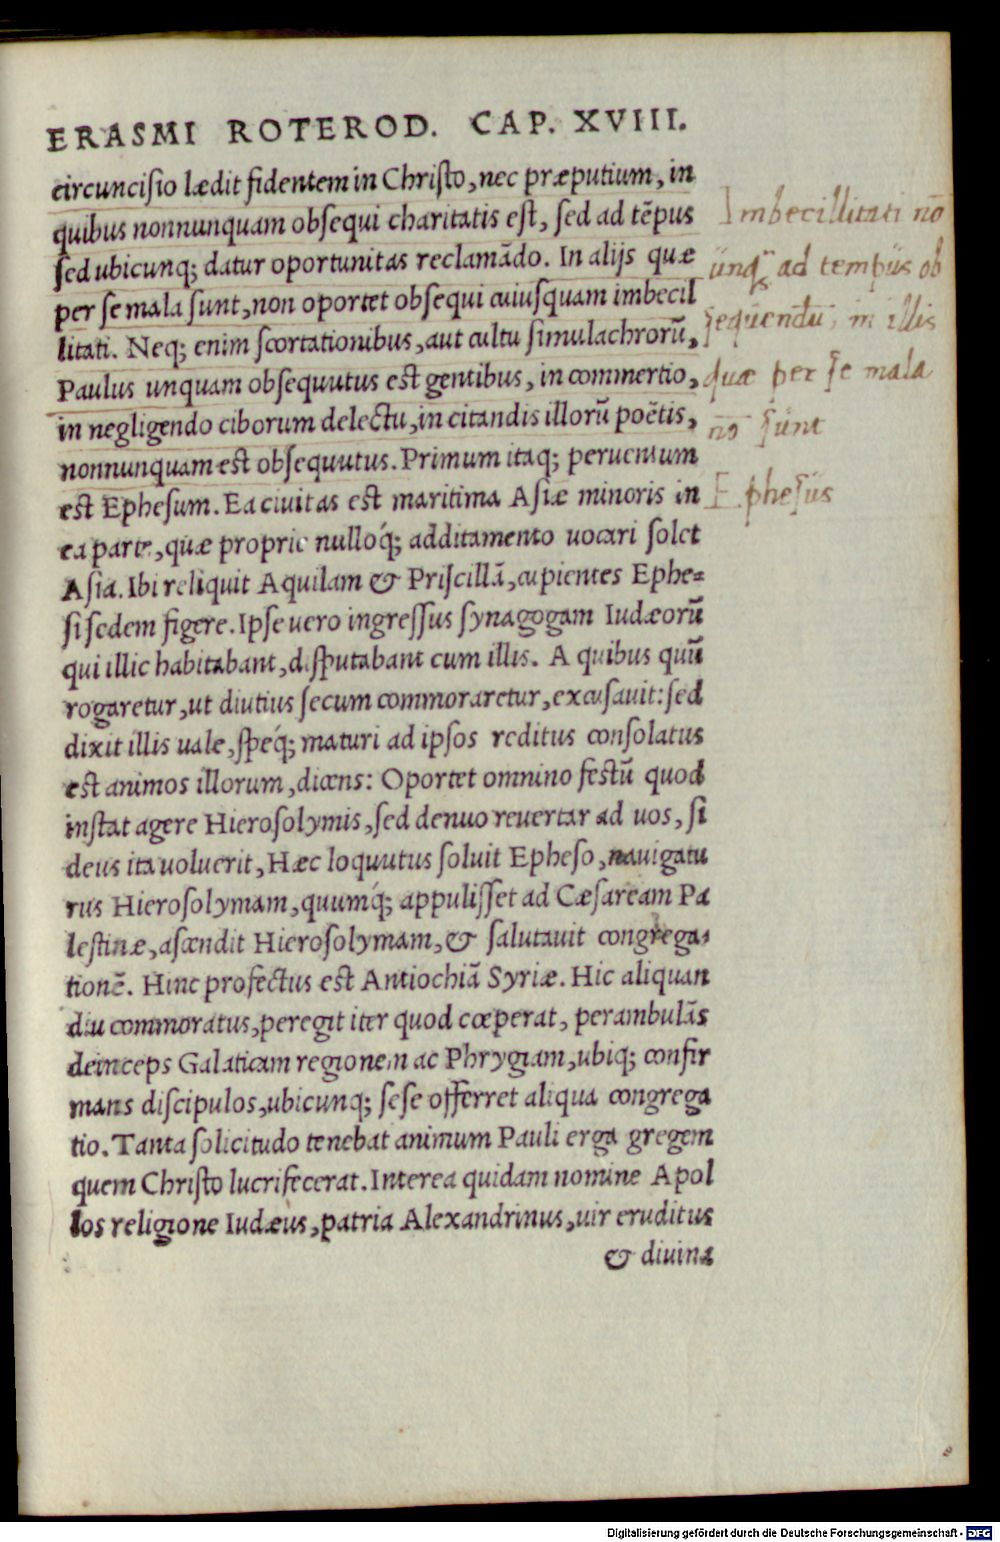 ERASMI ROTEROD. CAP. XVIII.
circuncisio lædit fidentem in Christo, nec præputium, in
quibus nonnunquam obsequi charitatis est, sed ad tẽpus
sed ubicunq; datur oportunitas reclamãdo. In alijs quæ
per se mala sunt, non oportet obsequi cuiusquam imbecil
litati. Neq; enim scortationibus, aut cultu simulachrorũ,
Paulus unquam obsequutus est gentibus, in commertio,
in negligendo ciborum delectu, in citandis illorũ poẽtis,
nonnunquam est obsequutus. Primum itaq; peruentum
est Ephesum. Ea ciuitas est maritima Asiæ minoris in
ea parte, quæ proprie nulloq́; additamento uocari solet
Asia. Ibi reliquit Aquilam & Priscillã, cupientes Ephe=
si sedem figere. Ipse uero ingressus synagogam Iudæorũ
qui illic habitabant, disputabant cum illis. A quibus quũ
rogaretur, ut diutius secum commoraretur, excusauit: sed
dixit illis uale, speq́; maturi ad ipsos reditus consolatus
est animos illorum, dicens: Oportet omnino festũ quod
instat agere Hierosolymis, sed denuo reuertar ad uos, si
deus ita uoluerit, Hæc loquutus soluit Epheso, nauigatu
rus Hierosolymam, quumq́; appulisset ad Cæsaream Pa
lestinæ, ascendit Hierosolymam, & salutauit congrega=
tionẽ. Hinc profectus est Antiochiã Syriæ. Hic aliquan
diu commoratus, peregit iter quod cœperat, perambulãs
deinceps Galaticam regionem ac Phrygiam, ubiq; confir
mans discipulos, ubicunq; sese offerret aliqua congrega
tio. Tanta solicitudo tenebat animum Pauli erga gregem
quem Christo lucrifecerat. Interea quidam nomine Apol
los religione Iudæus, patria Alexandrinus, uir eruditus
& diuina
Imbecillitati nõ
unq̃ ad tempus ob
sequendũ, in illis
quæ per se mala
nõ sunt
Ephesus
Digitalisierung gefördert durch die Deutsche Forschungsgemeinschaft - DFG